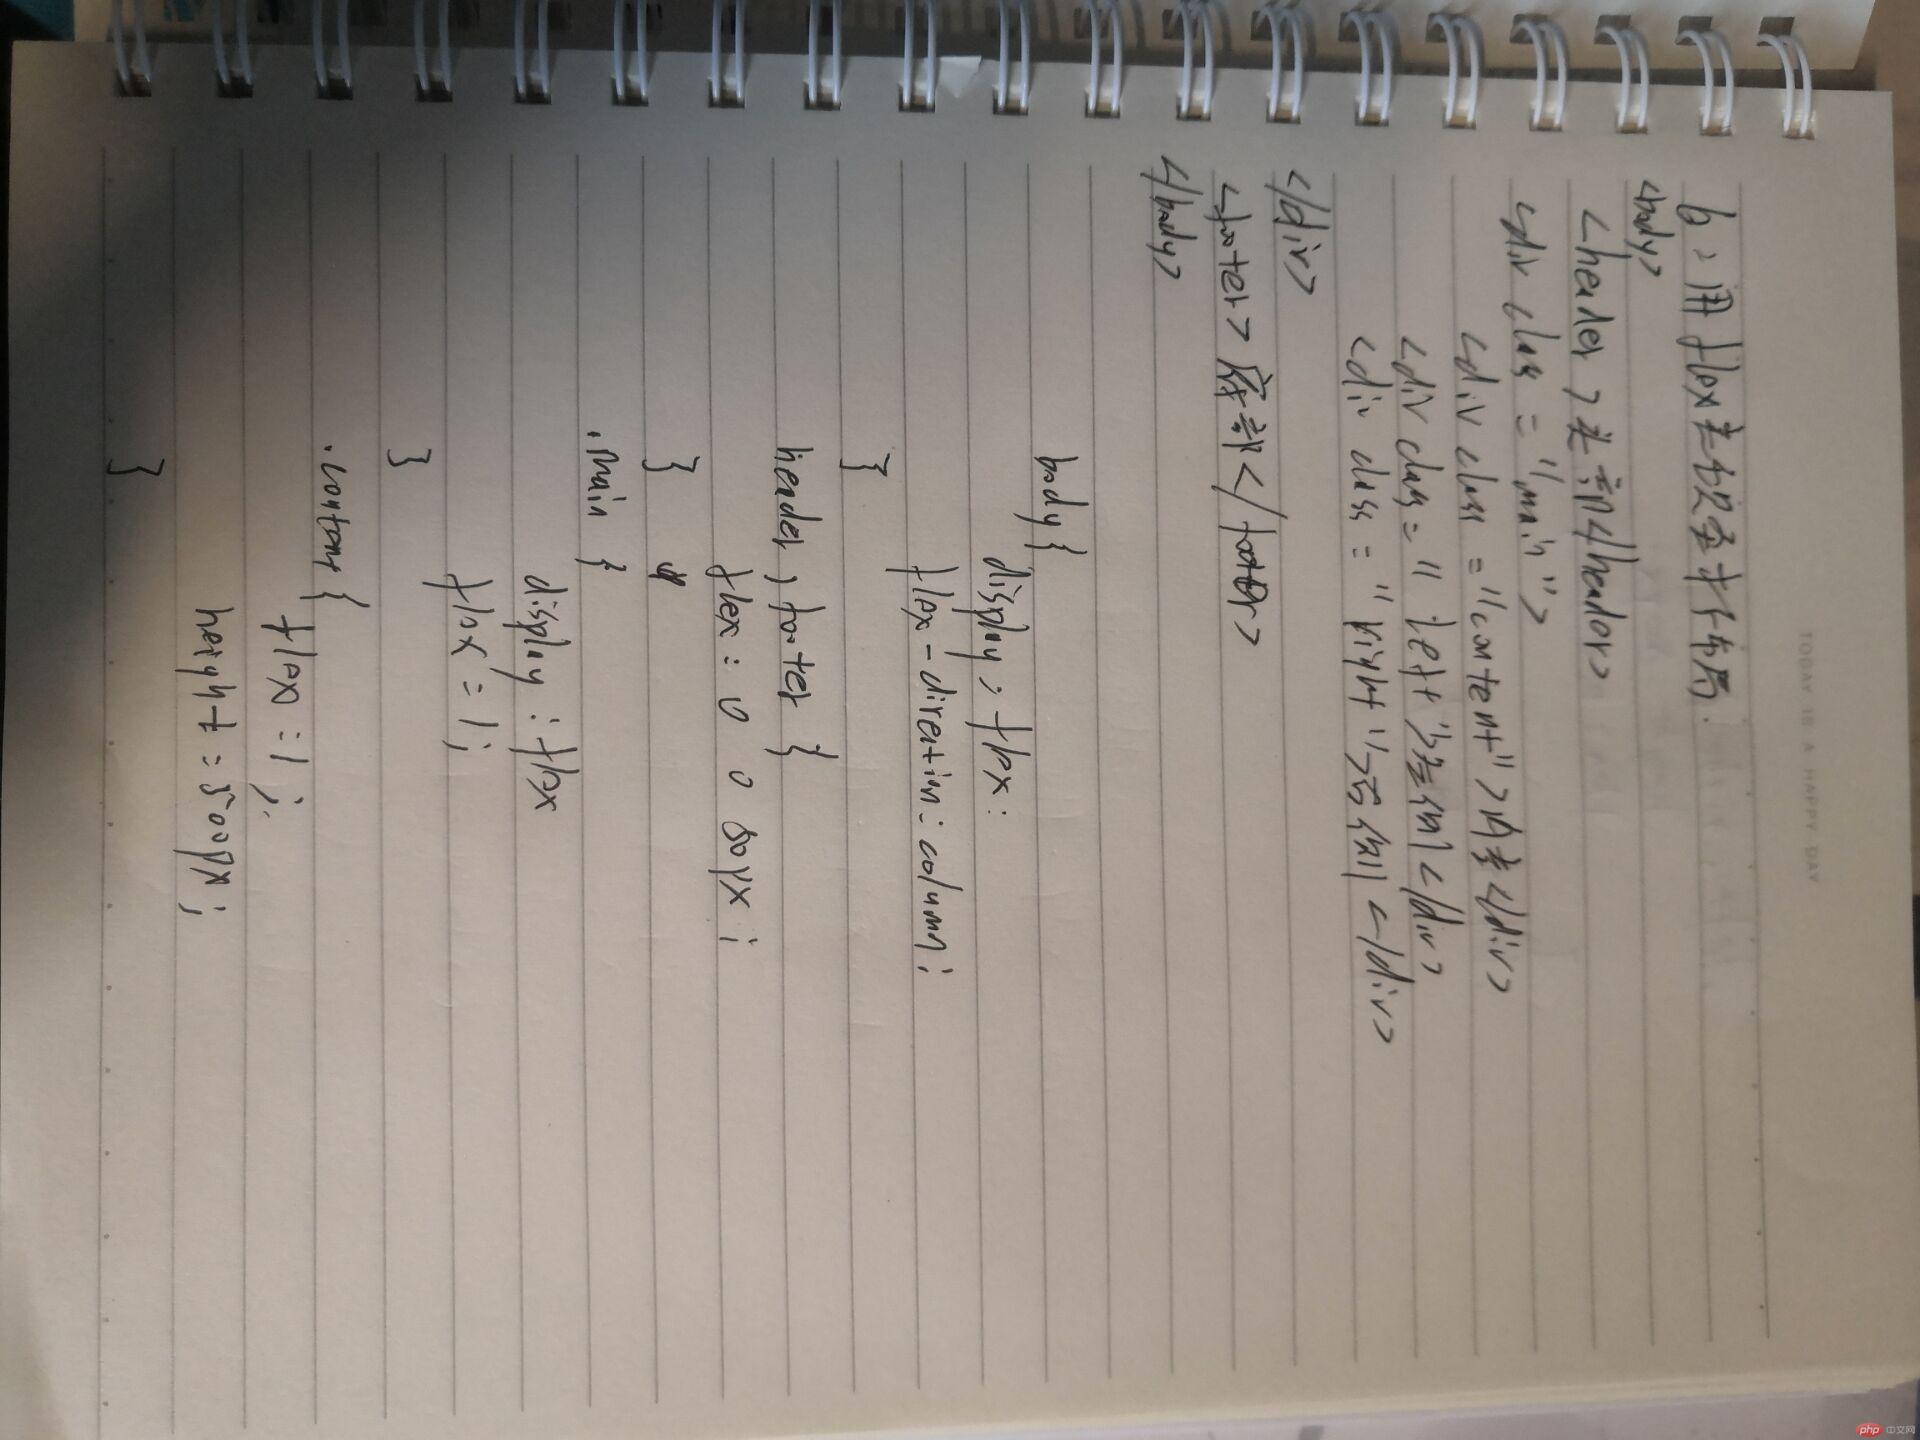 6、用flex来假圣杯布局.
<body>
<header>头部</header>
<div class="main">
<div class="content">内容</div>
<div class="left">左侧</div>
<div class="right">右侧</div>
</div>
<footer>底部</footer>
</body>
body{
display: flex:
flex-direction: column;
}
header, footer {
flex: 0 0 80px;
}
.main {
display: flex
flex = 1;
}
.content {
flex = 1;
height = 500px;
}
TODAY IS A HAPPY DAY
php 中文网